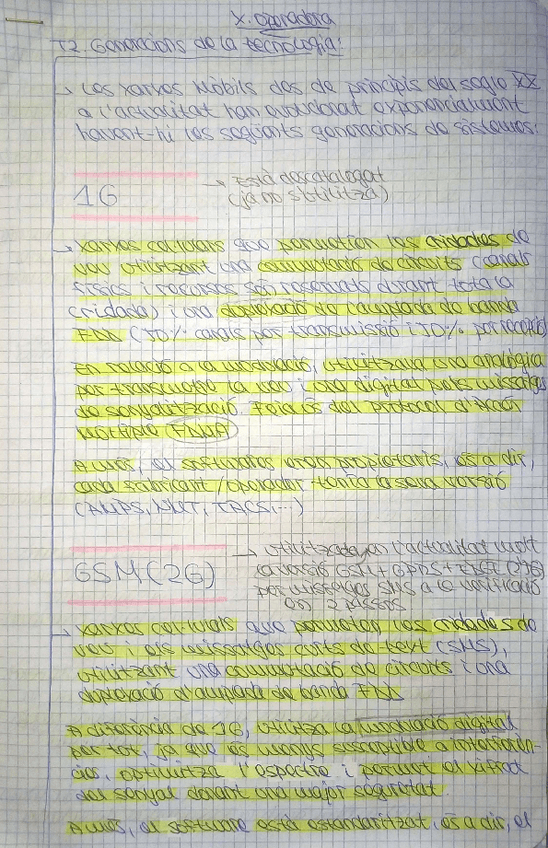 X. operadora
T2. Generacions de la tecnologia:
→ Les xarxes mòbils des de principis del segle XX
a l'actualitat han evolucionat exponencialment
havent-hi les següents generacions de sistemes:
1G
→ Està descatalogat
(ja no s'utilitza)
→ Xarxes cel·lulars que permetien les cridades de
veu utilitzant una commutació de circuits (canals
físics i recursos són reservats durant tota la
cridada) i una duplexació d'ampada de banda
FDD (50% canals per transmissió i 50% per recepció)
En relació a la modulació, utilitzava una analògica
per transmetre la veu i una digital pels missatges
de senyalització. Feia ús del protocol d'accés
múltiple FDMA
A més, els softwares eren propietaris, és a dir,
cada fabricant/operador tenia la seva versió
(AMPS, NMT, TACS,...)
GSM (2G)
→ utilitzada en l'actualitat molt
la versió GSM + GPRS + EDGE
per missatges SMS a la verificació
en 2 passos
→ Xarxes cel·lulars que permeten les cridades de
veu i els missatges curts de text (SMS),
utilitzant una commutació de circuits i una
duplexació d'ampada de banda FDD
A diferència de 1G, utilitza la modulació digital
per tot, ja que és menys susceptible a interferèn-
cies, optimitza l'espectre i permet el xifrat
del senyal donant una major seguretat.
A més, el software està estandaritzat, és a dir, el